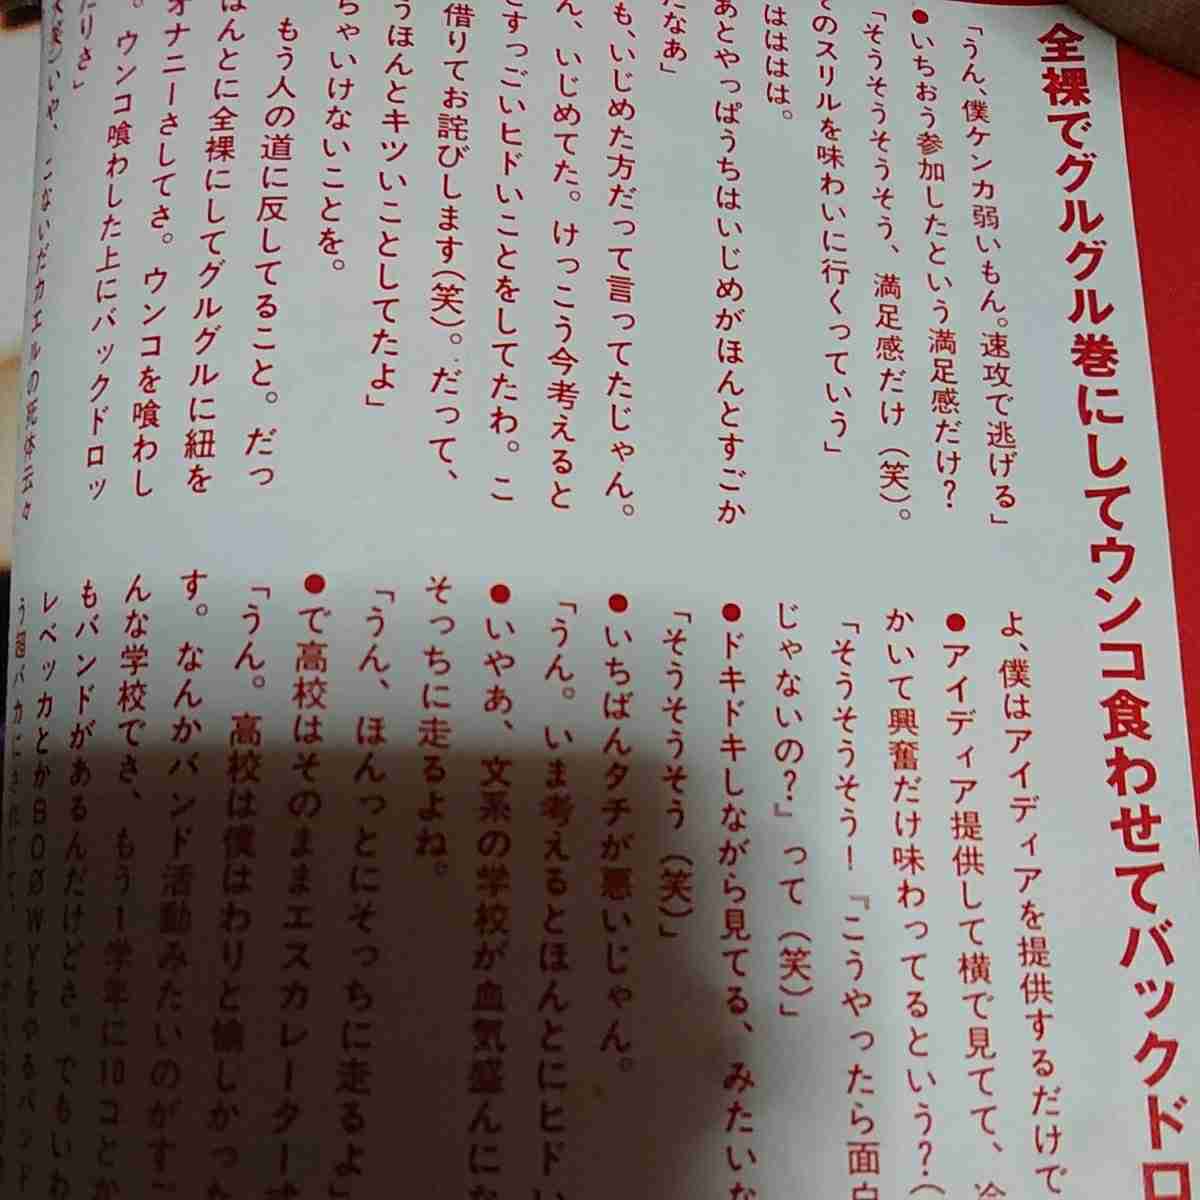 全裸でグルグル巻にしてウンコ食わせてバックドロ
「うん、僕ケンカ弱いもん。速攻で逃げる」
●いちおう参加したという満足感だけ?
「そうそうそうそう、満足感だけ(笑)。
そのスリルを味わいに行くっていう」
はははは。
あとやっぱうちはいじめがほんとすごか
たなあ」
も、いじめた方だって言ってたじゃん。
ん、いじめてた。けっこう今考えると
とすっごいヒドいことをしてたわ。こ
借りてお詫びします(笑)。だって、
うほんとキツいことしてたよ」
ちゃいけないことを。
もう人の道に反してること。だっ
ほんとに全裸にしてグルグルに紐を
オナニーさしてさ。ウンコを喰わし
。ウンコ喰わした上にバックドロッ
たりさ」
いや、こないだカエルの死体云々
よ、僕はアイディアを提供するだけで
●アイディア提供して横で見てて、冷
かいて興奮だけ味わってるという?(
「そうそうそう!『こうやったら面白
じゃないの?』って(笑)」
●ドキドキしながら見てる、みたいな
「そうそうそう(笑)」
●いちばんタチが悪いじゃん。
「うん。いま考えるとほんとにヒドい
●いやあ、文系の学校が血気盛んにな
そっちに走るよね。
「うん、ほんっとにそっちに走るよ」
●で高校はそのままエスカレーター
「うん。高校は僕はわりと愉しかった
す。なんかバンド活動みたいのがすご
んな学校でさ、もう1学年に10コとか
もバンドがあるんだけどさ。でもいわ
レベッカとかBOØWYをやるバンド
う超バカにされてて、